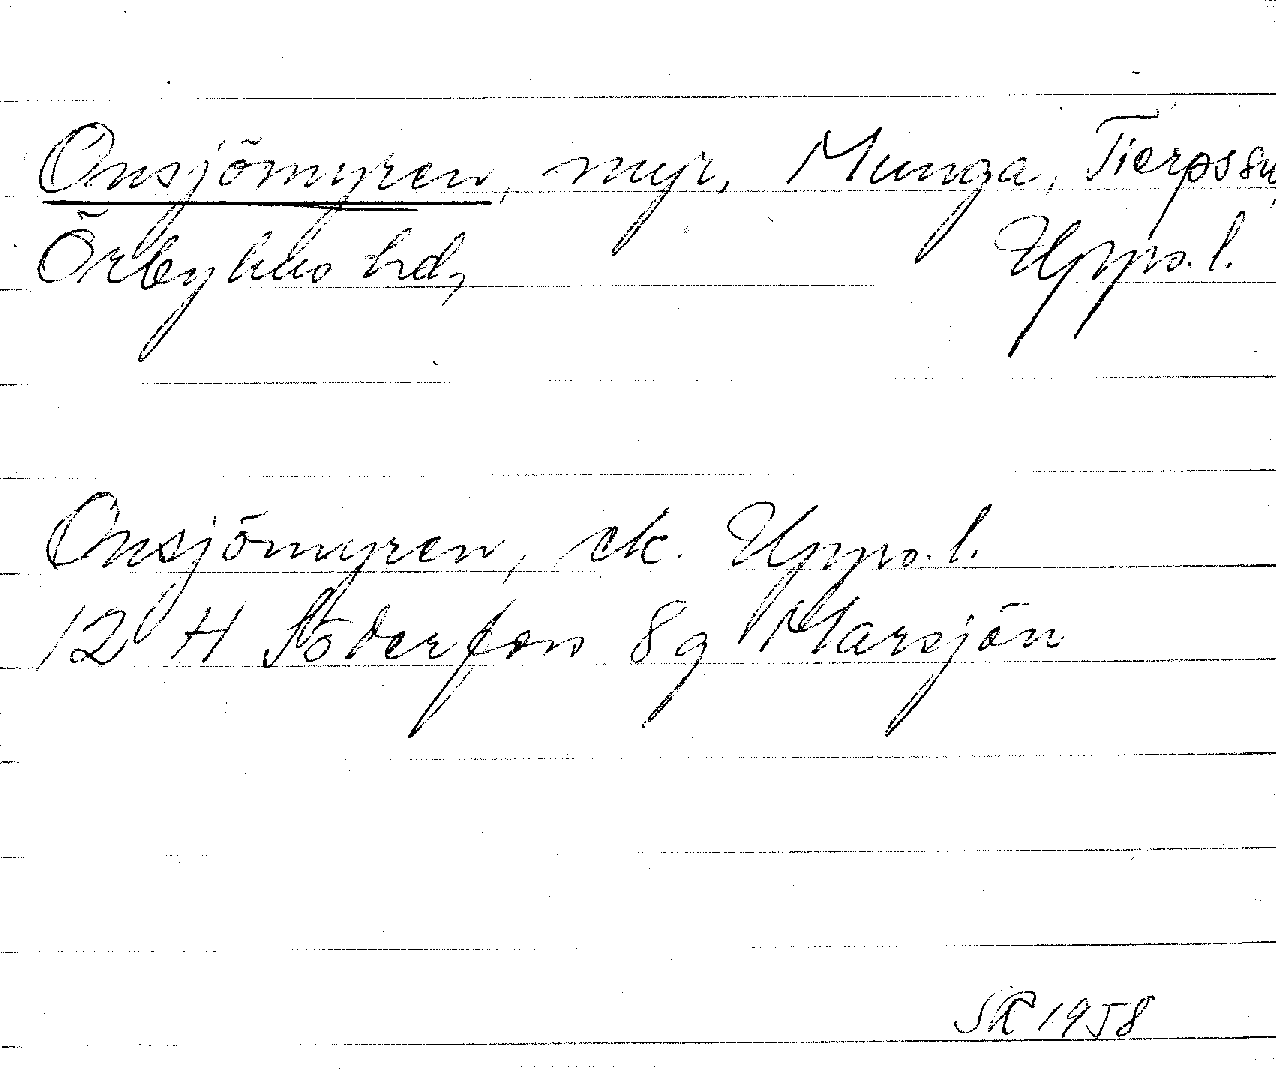 Onsjömyren, myr, Munga, Tierps sn,
Örbyhus hd, Upps. l.
Onsjömyren, ek. Upps. l.
12 H Söderfors 8g Marsjön
SR 1958